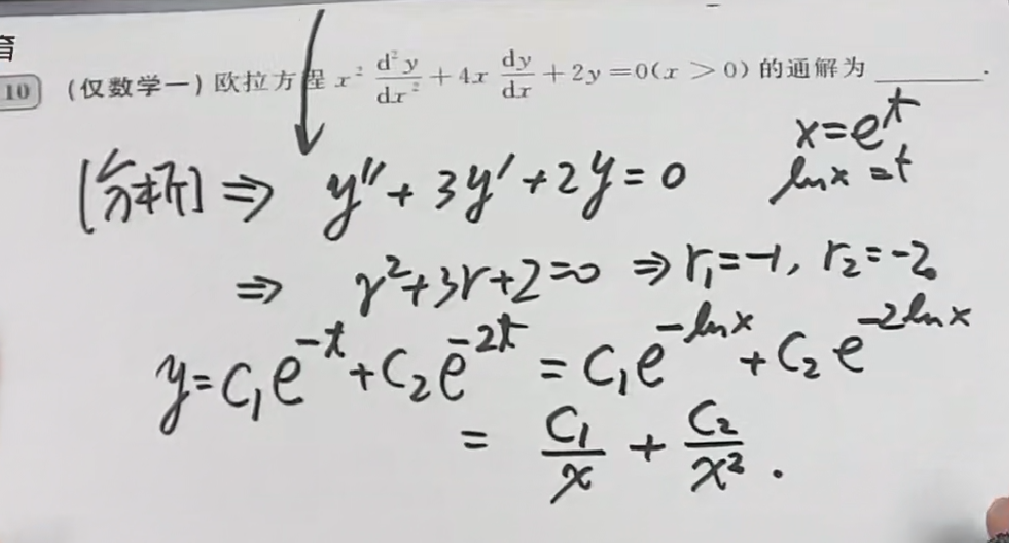 育
10 (仅数学一)欧拉方程 x² d²y/dx² + 4x dy/dx + 2y = 0(x > 0) 的通解为 ______.
x=e^t
[分析] ⇒ y''+3y'+2y=0
lnx=t
⇒ r²+3r+2=0 ⇒ r₁=-1, r₂=-2
y=C₁e^{-t}+C₂e^{-2t} = C₁e^{-lnx}+C₂e^{-2lnx}
= C₁/x + C₂/x².